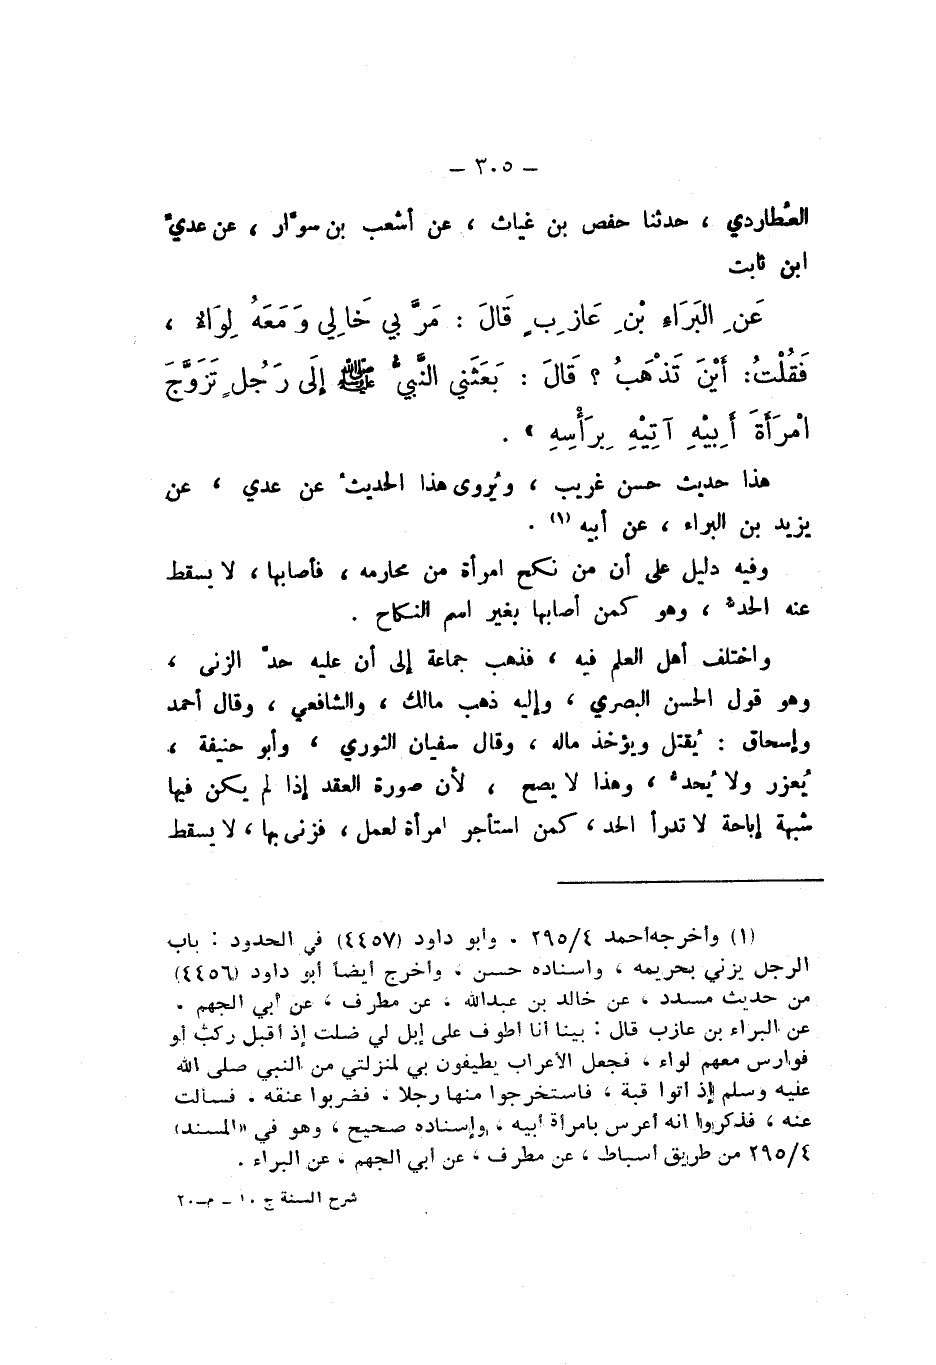 – ٣٠٥ –
العُطاردي ، حدثنا حفص بن غياث ، عن أشعب بن سوّار ، عن عديّ
ابن ثابت
عَنِ البَرَاءِ بْنِ عَازِبٍ قَالَ : مَرَّ بِي خَالِي وَمَعَهُ لِوَاءٌ ،
فَقُلْتُ: أَيْنَ تَذْهَبُ ؟ قَالَ : بَعَثَنِي النَّبِيُّ ﷺ إِلَى رَجُلٍ تَزَوَّجَ
امْرَأَةَ أَبِيْهِ آتِيْهِ بِرَأْسِهِ » .
هذا حديث حسن غريب ، ويُروى هذا الحديثُ عن عدي ، عن
يزيد بن البراء ، عن أبيه (١) .
وفيه دليل على أن من نكح امرأة من محارمه ، فأصابها ، لا يسقط
عنه الحدُّ ، وهو كمن أصابها بغير اسم النكاح .
واختلف أهل العلم فيه ، فذهب جماعة إلى أن عليه حدَّ الزنى ،
وهو قول الحسن البصري ، وإليه ذهب مالك ، والشافعي ، وقال أحمد
وإسحاق : يُقتل ويؤخذ ماله ، وقال سفيان الثوري ، وأبو حنيفة ،
يُعزر ولا يُحدُّ ، وهذا لا يصح ، لأن صورة العقد إذا لم يكن فيها
شبهة إباحة لا تدرأ الحد ، كمن استأجر امرأة لعمل ، فزنى بها ، لا يسقط
(١) وأخرجه أحمد ٢٩٥/٤ . وأبو داود (٤٤٥٧) في الحدود : باب
الرجل يزني بحريمه ، وأسناده حسن ، وأخرج أيضاً أبو داود (٤٤٥٦)
من حديث مسدد ، عن خالد بن عبدالله ، عن مطرف ، عن أبي الجهم .
عن البراء بن عازب قال : بينا أنا أطوف على إبل لي ضلت إذ أقبل ركب أو
فوارس معهم لواء ، فجعل الأعراب يطيفون بي لمنزلتي من النبي صلى الله
عليه وسلم إذ أتوا قبة ، فاستخرجوا منها رجلا ، فضربوا عنقه . فسألت
عنه ، فذكروا أنه أعرس بامرأة أبيه ، وإسناده صحيح ، وهو في «المسند)
٢٩٥/٤ من طريق أسباط ، عن مطرف ، عن أبي الجهم ، عن البراء .
شرح السنة ج ١٠ – م–٢٠